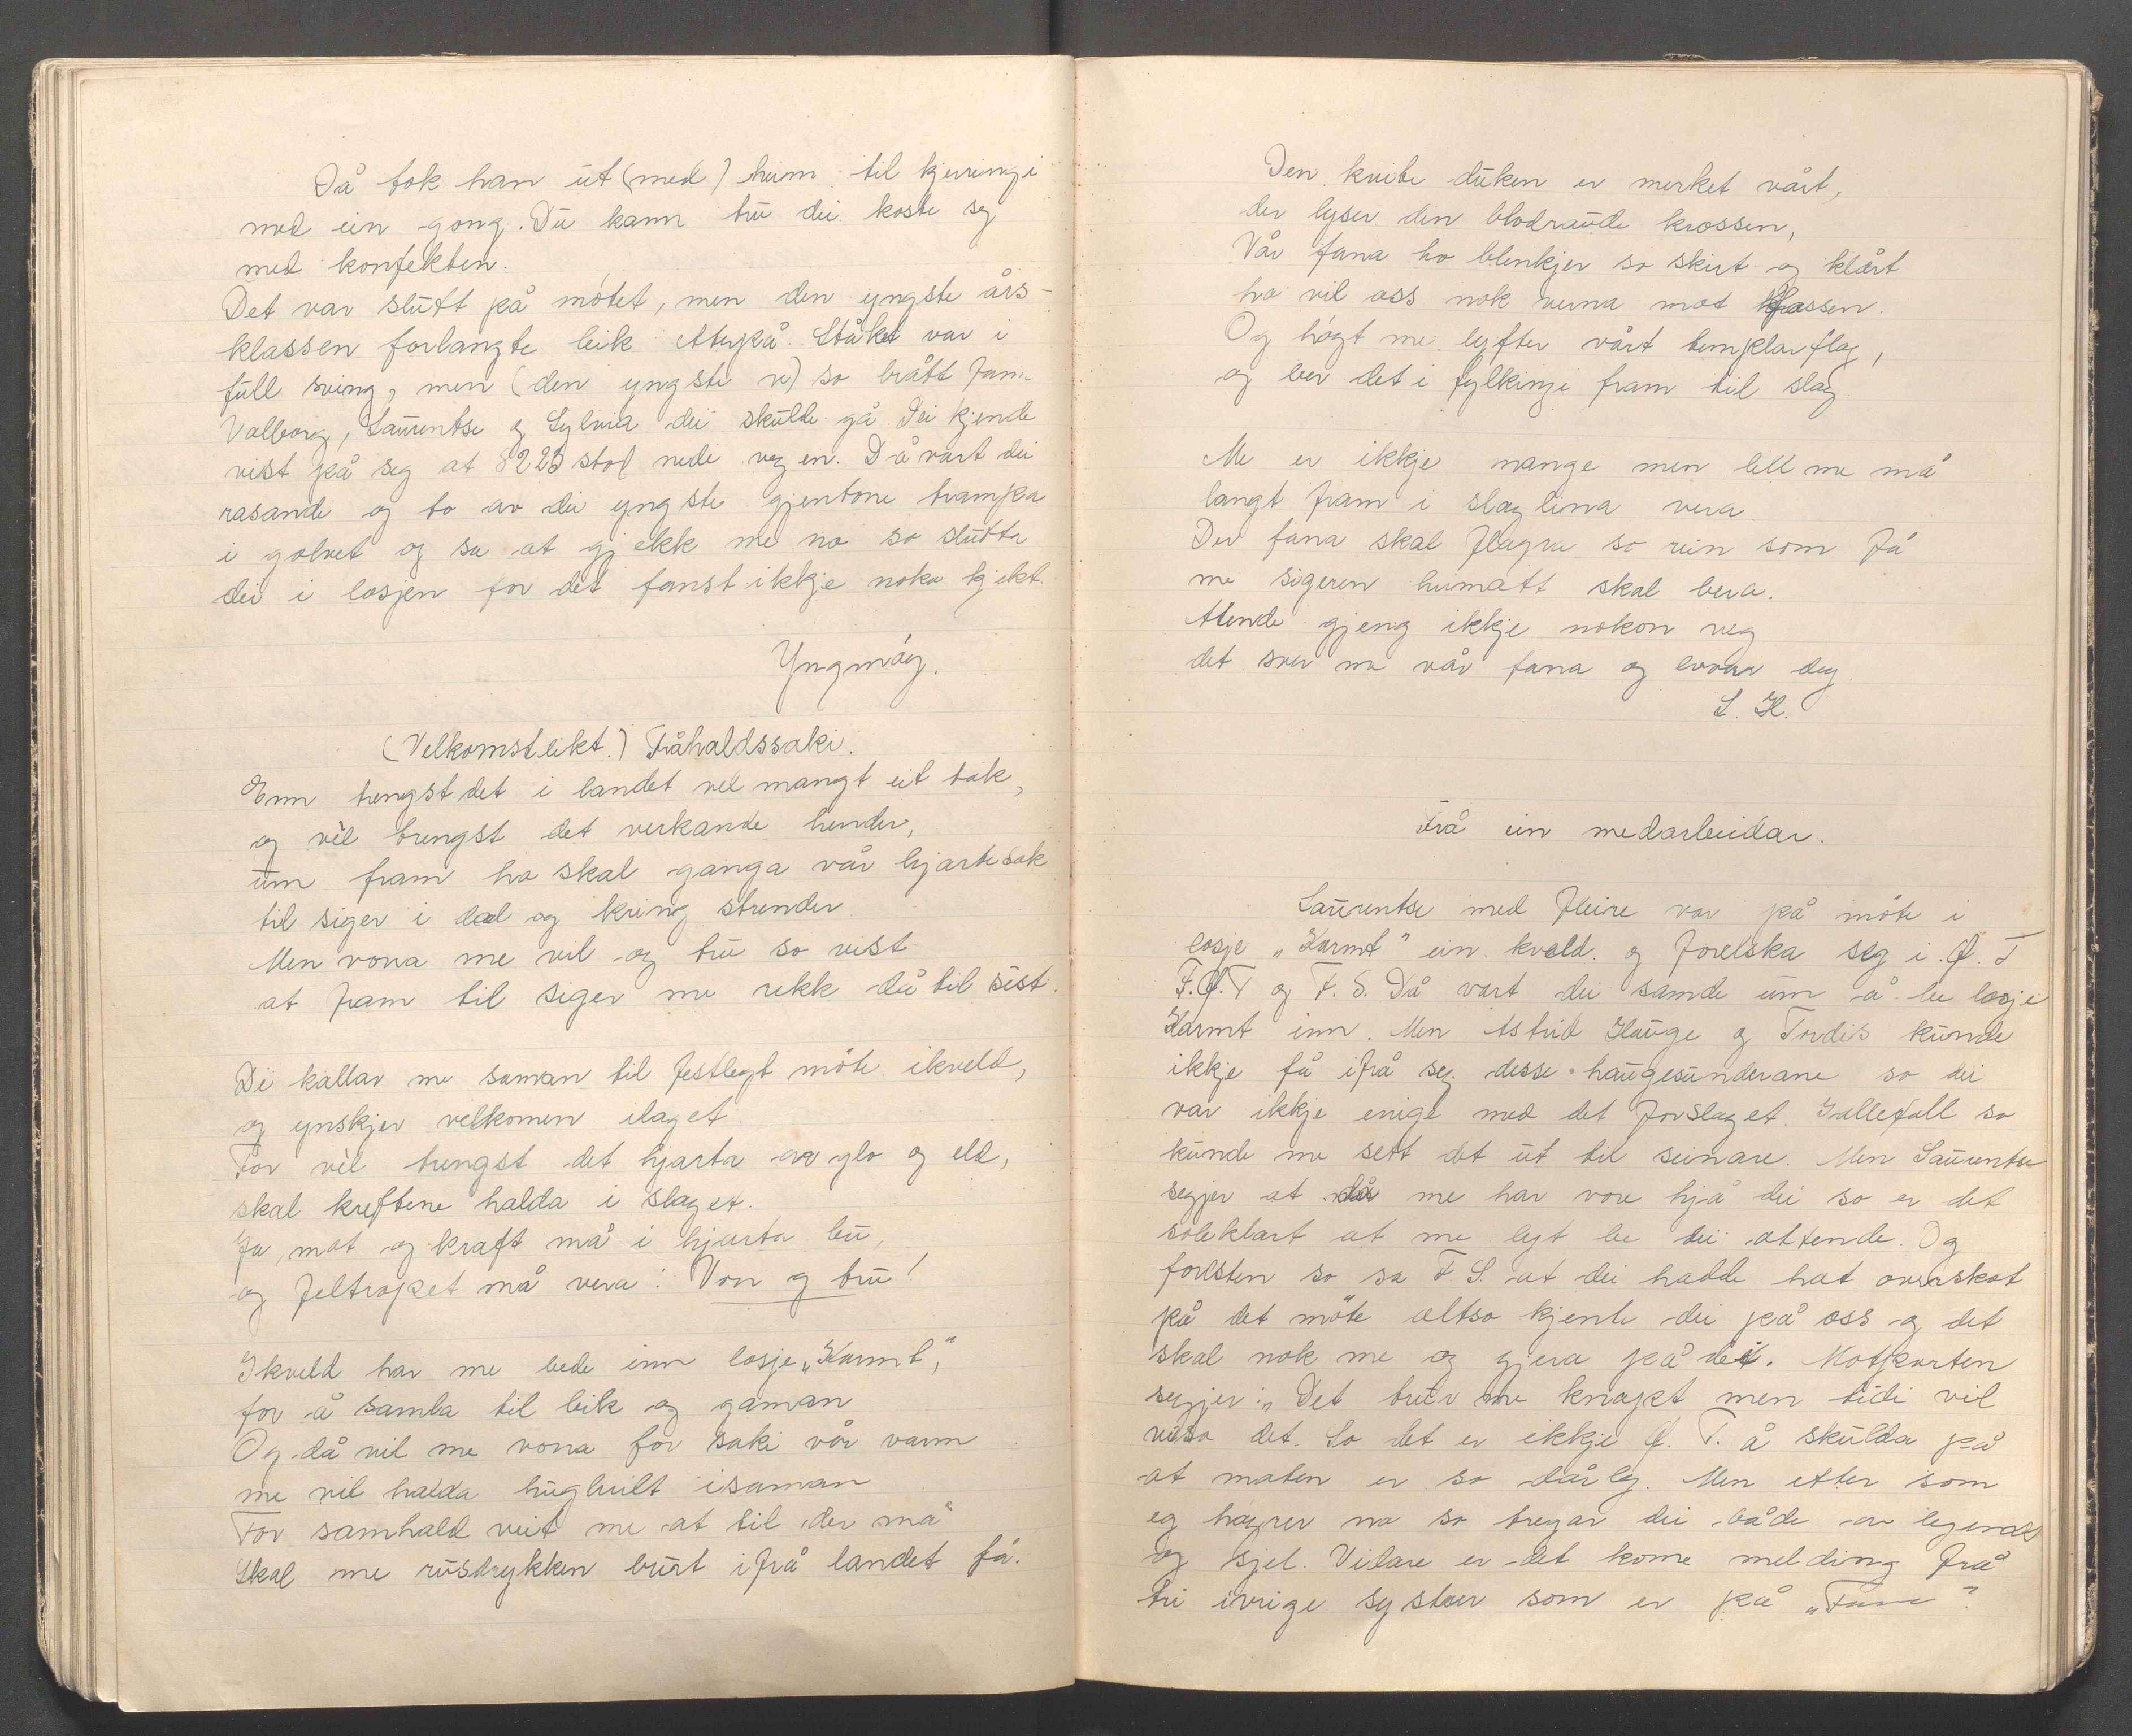 Då tok han ut (med) heim til kjerringi
med ein gong. Du kann tru dei koste seg
med konfekten.
Det var slutt på møtet, men den yngste års-
klassen forlangte leik etterpå. Ståket var i
full sving, men (den yngste) so brått fann
Valborg, Laurentse og Sylvia dei skulde gå. Dei kjende
vist på seg at 8225 stod nede vegen. Då vart dei
rasande og to av dei yngste gjentone trampa
i golvet og sa at gjekk me no so slutta
dei i losjen for det fanst ikkje noko kjekt.
Yngmøy.
(Velkomstdikt.) Fråhaldssaki.
Enn trengst det i landet vel mangt eit tak,
og vèl trengst det verkande hender,
um fram ho skal ganga vår hjartesak
til siger i dal og kring strender.
Men vona me vil og tru so vist
at fram til siger me rekk då til sist.
Di kallar me saman til festlegt møte ikveld,
og ynskjer velkomen ilaget.
For vèl trengst det hjarta av glo og eld,
skal kreftene halda i slaget.
Ja, mot og kraft må i hjarta bu,
og feltropet må vera: Von og tru!
Ikveld har me bede inn losje „Karmt",
for å samla til leik og gaman
Og då vil me vona for saki vår varm
me vil halda hugheilt isaman
For samhald veit me at til der må
Skal me rusdrykken burt ifrå landet få.
Den kvite duken er merket vårt,
der lyser den blodraude krossen,
Vår fana ho blenkjer so skirt og klårt
ho vil oss nok verna mot fossen.
Og høgt me lyfter vårt templarflag,
og ber det i fylkingi fram til slag.
Me er ikkje mange men lell me må
langt fram i slaglina vera
Der fana skal flagra so rein som få
me sigeren heimatt skal bera.
Attende gjeng ikkje nokon veg
det sver me vår fana og lovar deg.
L. H.
Frå ein medarbeidar.
Laurentse med fleire var på møte i
losje „Karmt" ein kveld. og forelska seg i. Ø. T
F.Ø.T og F. S. Då vart dei samde um å be losje
Karmt inn. Men Astrid Hauge og Tordis kunde
ikkje få ifrå seg desse haugesunderane so dei
var ikkje enige med det forslaget. Iallefall so
kunde me sett det ut til seinare. Men Laurentse
segjer at når me har vore hjå dei so er det
soleklart at me lyt be dei attende. Og
foresten so sa F. S. at dei hadde hat overskot
på det møte altso kjente dei på oss og det
skal nok me og gjera på dei. Motparten
segjer: „Det trur me knapt men tidi vil
visa det. So det er ikkje Ø. T. å skulda på
at maten er so dårleg. Men etter som
eg høyrer no so tregar dei både av legemet
og sjel. Vidare er det kome melding frå
tri ivrige systrer som er på